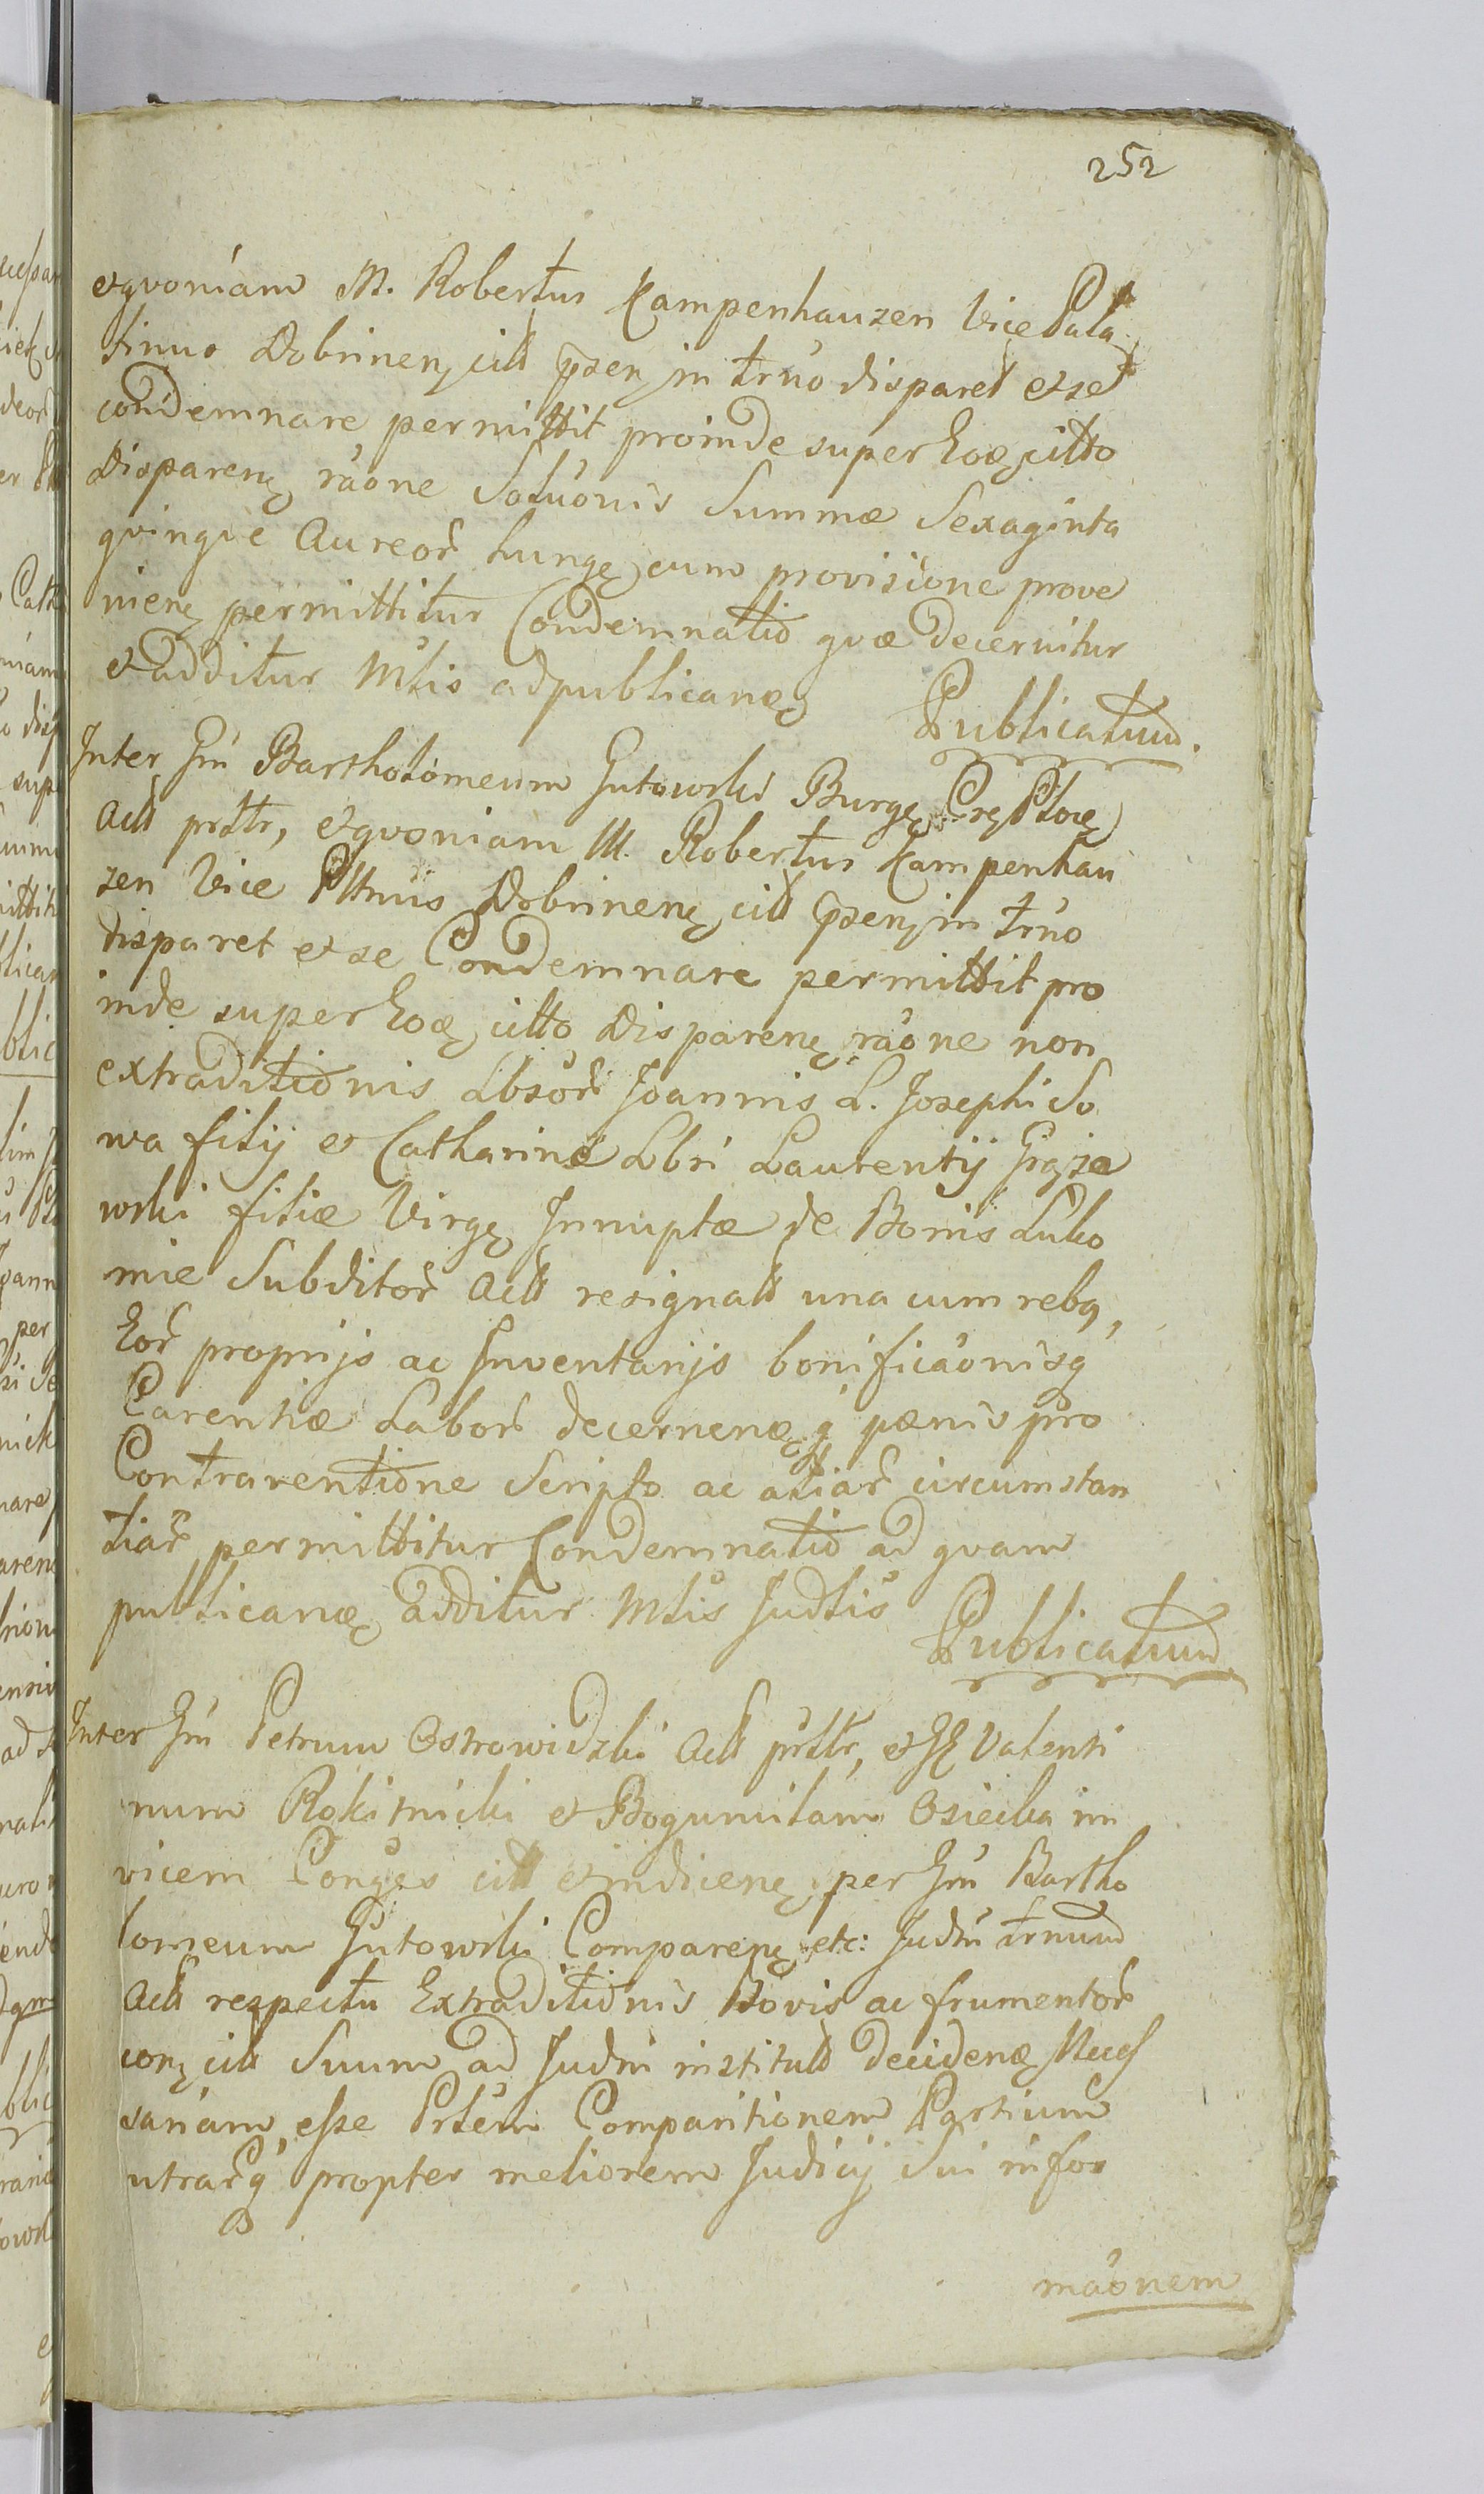 252
et qvoniam M. Robertus Kampenhauzen Vice Pala
tinus Dobrinen citt pzen in trno disparet et se
condemnare permittit proinde super Eoq citto
Disparenę raone Soluonis Summæ Sexaginta
qvinqve Aureor hungę cum provisione prove
nienę permittitur Condemnatio qvæ decernitur
et additur Mtlis ad publicanę
Publicatum.
Inter Gm Bartholomeum Gutowski Burgę
Actt prttr, et qvoniam M. Robertus Kampenhau
zen Vice Pltnus Dobrinenę citt pzen in trno
disparet et se Condemnare permittit pro
inde super Eoq citto Disparenę raone non
extraditionis Lbsor Joannis L. Josephi So
wa filij et Catharinæ Lbri Laurentij Grąze
wski filiæ Virgę Innuptæ de Bonis Luko
mie Subditor Actt resignatt una cum rebq,
Eor proprijs ac Inventarijs bonificaonisq
Carentiæ Labor decernenæq pænis pro
Contraventione Scripto ac aliar circumstan
tiar permittitur Condemnatio ad qvam
publicanę additur Mtlis Judlis
Publicatum
Inter Gm Petrum Ostrowidzki Actt prttr, et GG Valenti
num Rokitnicki et Bogumilam Osiecka in
vicem Conges citt et indicenę per Gm Bartho
lomeum Gutowski Comparenę etc: Judm trnum
Actt respectu Extraditionis Bovis ac frumentor
conę citt Suum ad Judm institutt decidenę Necess
sariam esse Prlem Comparitionem Partium
utrarq propter meliorem Judicij Sui infor
maonem